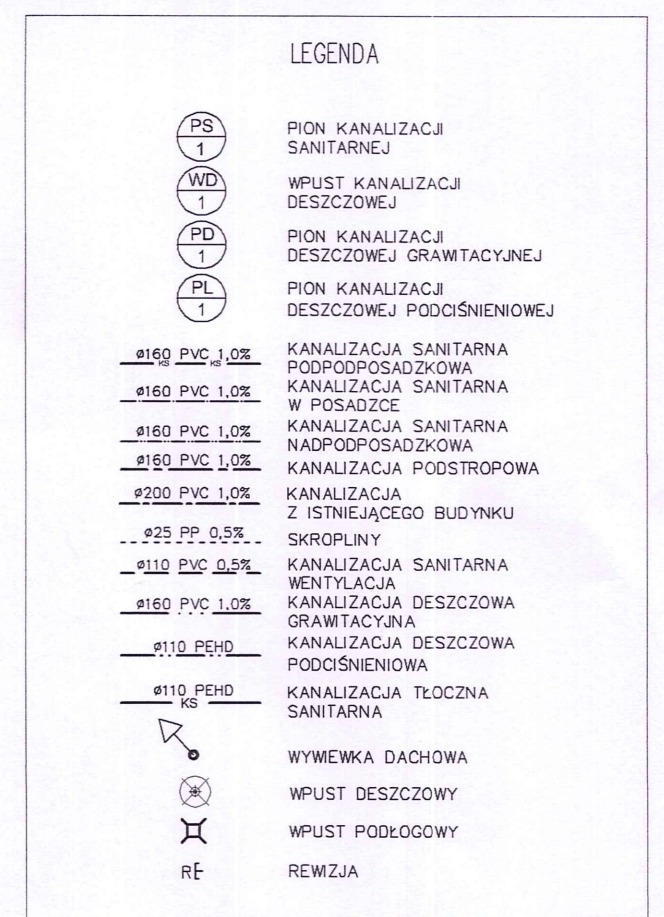 LEGENDA
PS PION KANALIZACJI
1 SANITARNEJ
WD WPUST KANALIZACJI
1 DESZCZOWEJ
PD PION KANALIZACJI
1 DESZCZOWEJ GRAWITACYJNEJ
PL PION KANALIZACJI
1 DESZCZOWEJ PODCIŚNIENIOWEJ
ø160 PVC 1,0% KANALIZACJA SANITARNA
KS KS PODPODPOSADZKOWA
ø160 PVC 1,0% KANALIZACJA SANITARNA
W POSADZCE
ø160 PVC 1,0% KANALIZACJA SANITARNA
NADPODPOSADZKOWA
ø160 PVC 1,0% KANALIZACJA PODSTROPOWA
ø200 PVC 1,0% KANALIZACJA
Z ISTNIEJĄCEGO BUDYNKU
ø25 PP 0,5% SKROPLINY
ø110 PVC 0,5% KANALIZACJA SANITARNA
WENTYLACJA
ø160 PVC 1.0% KANALIZACJA DESZCZOWA
GRAWITACYJNA
ø110 PEHD KANALIZACJA DESZCZOWA
PODCIŚNIENIOWA
ø110 PEHD KANALIZACJA TŁOCZNA
KS SANITARNA
WYWIEWKA DACHOWA
WPUST DESZCZOWY
WPUST PODŁOGOWY
RE REWIZJA